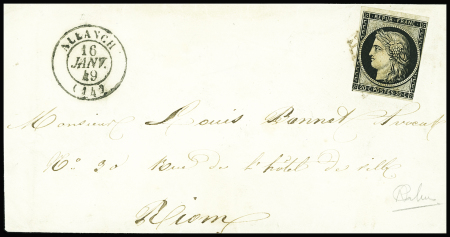 ALLANCH
16
JANV.
49
(14)
REPUB. FRANC.
20 C. POSTES 20 C.
Monsieur Louis Bonnet Avocat
N° 30 Rue de l'hôtel de ville
Riom